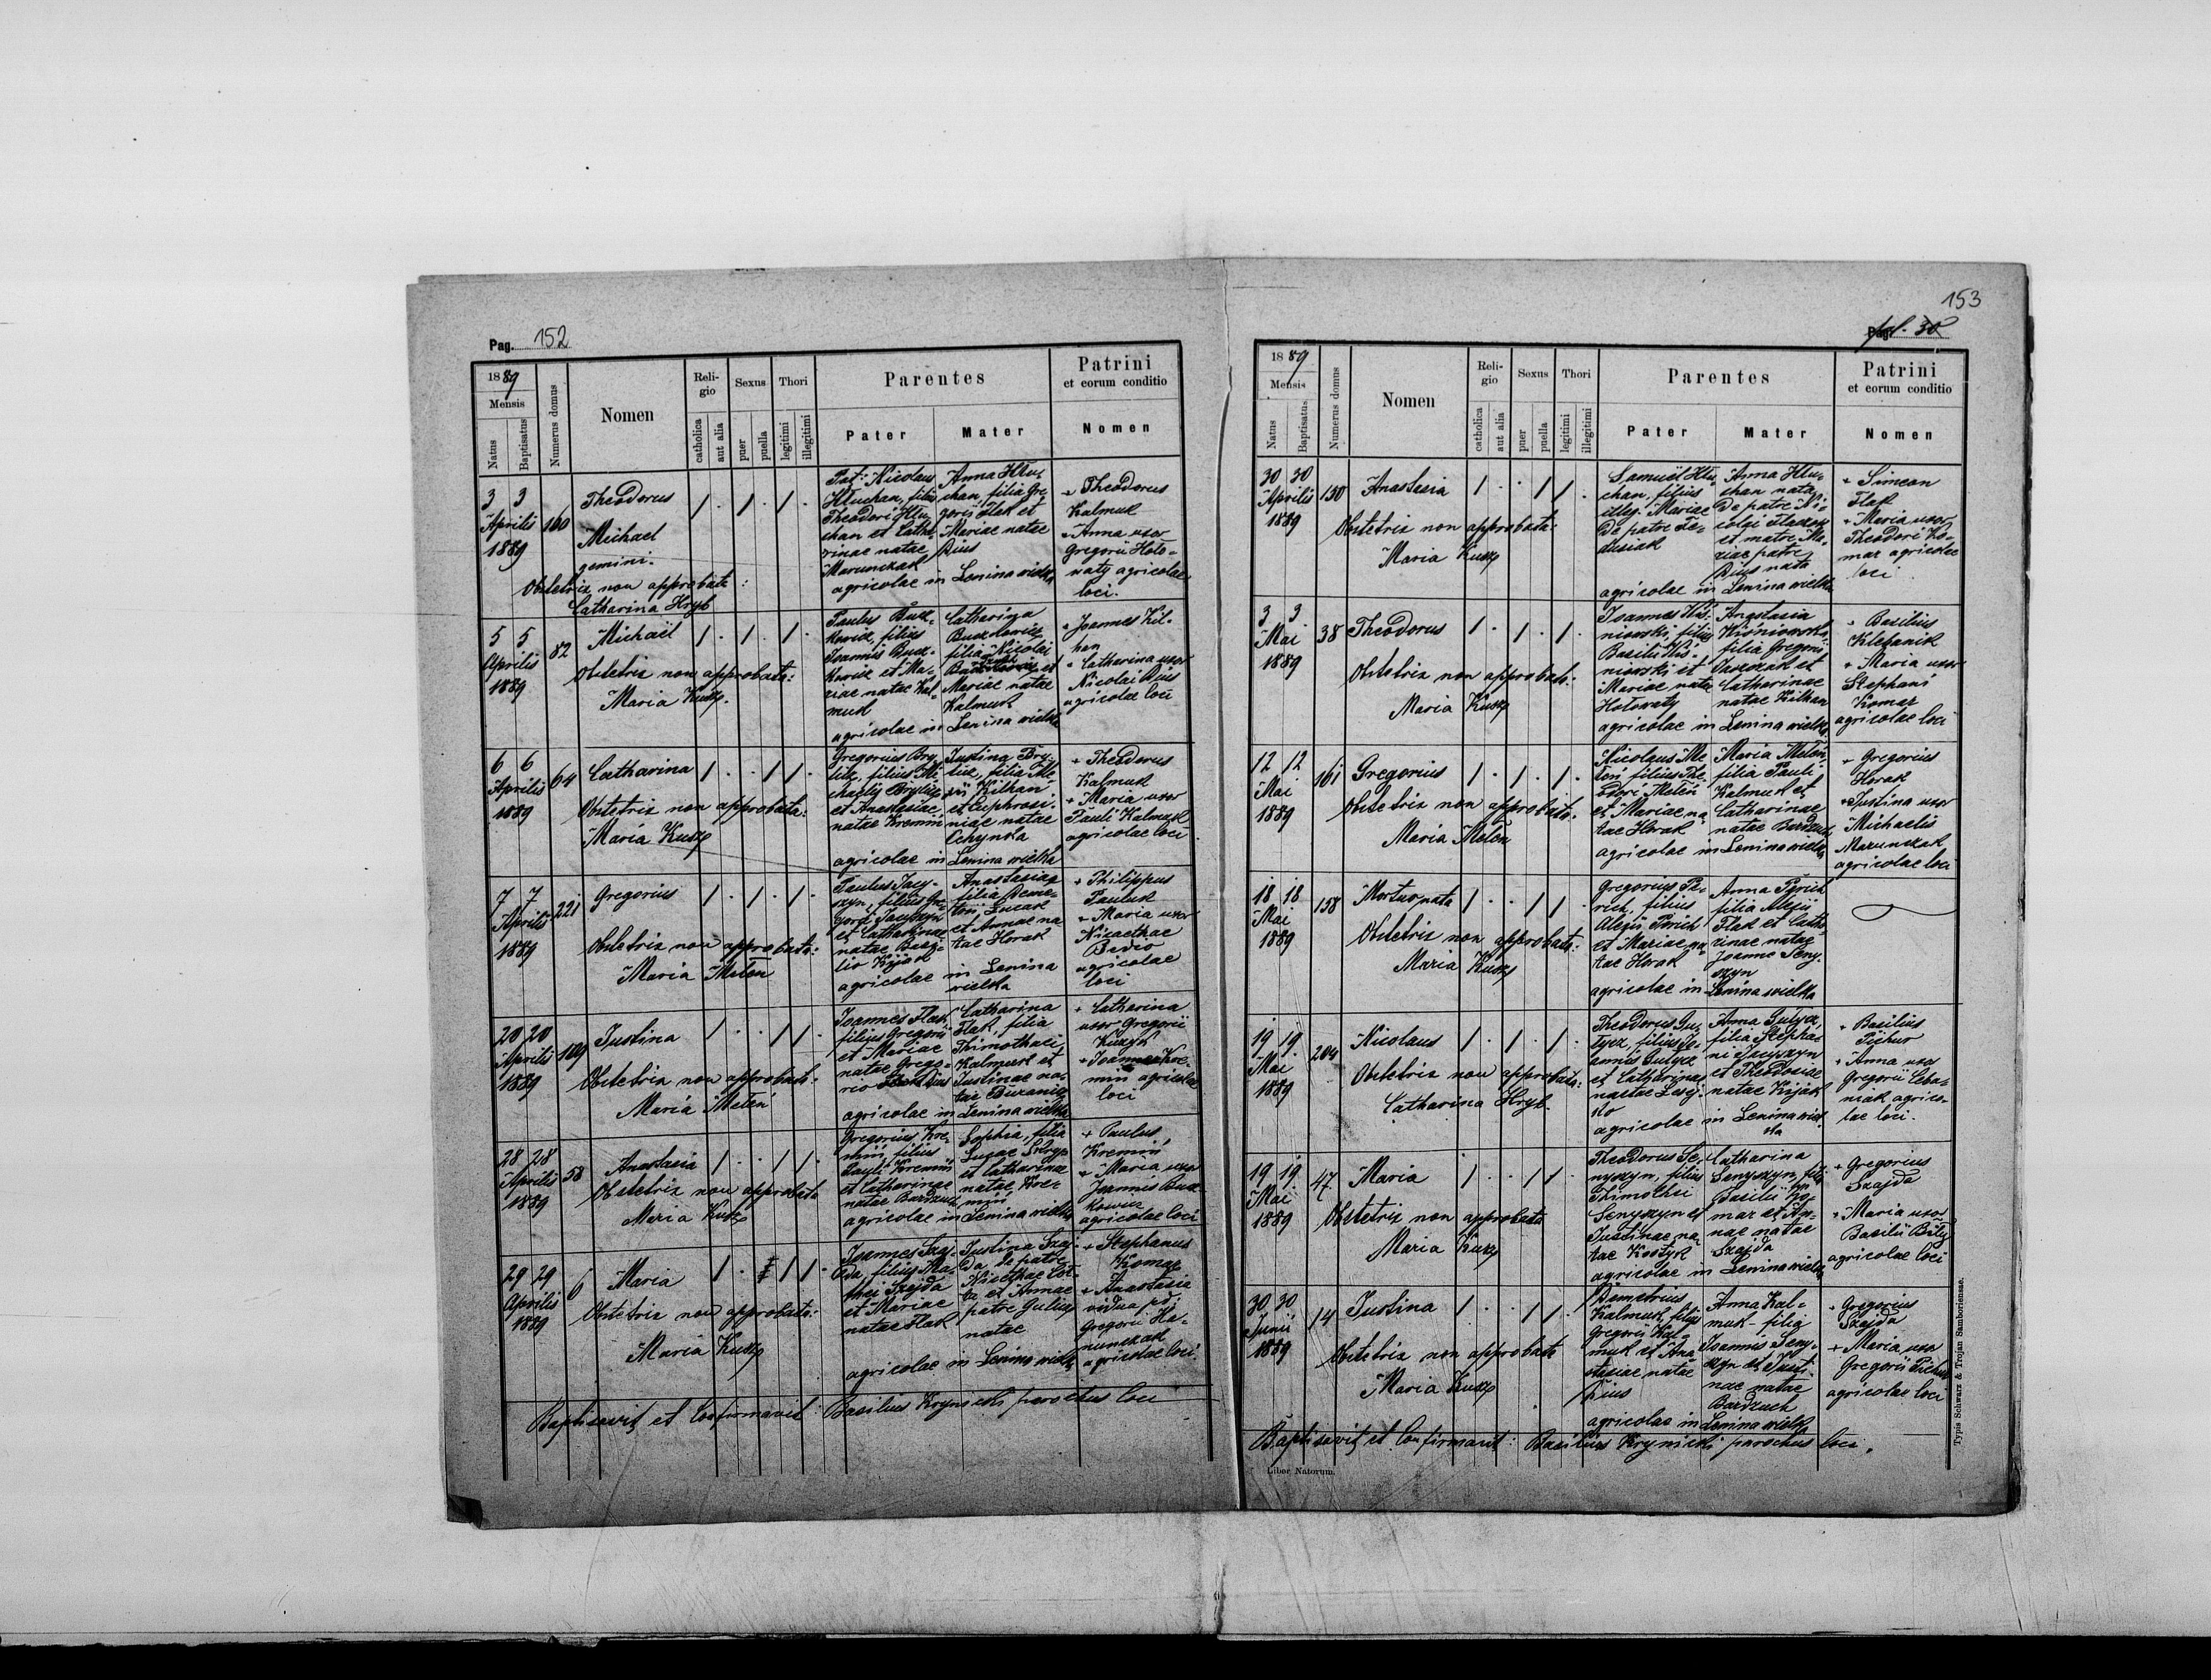 Pag. 152
1889
Mensis
Natus
Baptisatus
Numerus domus
Nomen
Reli-
gio
catholica
aut alia
Sexus
puer
puella
Thori
legitimi
illegitimi
Parentes
Pater
Mater
Patrini
et eorum conditio
Nomen
3 3
Aprilis
1889
160
Theodorus
Michael
gemini.
Obstetrix non approbata:
Catharina Hryb
Nicolaus
Hluchan, filius
Theodori Hlu-
chan et Catha-
rinae natae
Marunczak
Anna Hlu-
chan, filia Gre-
gorii Flak et
Mariae natae
Dius
agricolae in Lenina wielka
+ Theodorus
Kalmuk
+ Anna uxor
Gregorii Holo-
waty agricolae
loci.
5 5
Aprilis
1889
82
Michaël
Obstetrix non approbata:
Maria Kusz.
Paulus Bucz-
kowicz, filius
Joannis Bucz-
kowicz et Ma-
riae natae Kal-
muk
Catharina
Buczkowicz
filia Nicolai
et
Mariae natae
Kalmuk
agricolae in Lenina wielka
+ Joannes Kil-
han
+ Catharina uxor
Nicolai Dius
agricolae loci
6 6
Aprilis
1889
64
Catharina
Obstetrix non approbata:
Maria Kusz
Gregorius Bry-
licz, filius Mi-
chaelis Brylicz
et Anastasiae
natae Kremin
Justina Bry-
licz, filia Ale-
xii Kilhan
et Euphrosi-
niae natae
Cchynka
agricolae in Lenina wielka
+ Theodorus
Kalmuk
+ Maria uxor
Pauli Kalmuk
agricolae loci
7 7
Aprilis
1889
221
Gregorius
Obstetrix non approbata:
Maria Meteń
Paulus Jacy-
szyn, filius Gre-
gorii Jacyszyn
et Catharinae
natae Basi-
lio Kijak
Anastasia
filia Deme-
trii Lucak
et Annae na-
tae Horak
agricolae in Lenina
wielka
+ Philippus
Pauluk
+ Maria uxor
Nicaethae
Bedio
agricolae
loci
20 20
Aprilis
1889
109
Justina
Obstetrix non approbata:
Maria Meteń
Joannes Flak
filius Gregorii
et Mariae
natae Grego-
rio Dius
Catharina
Flak, filia
Thimothaei
Kalmuk et
Justinae na-
tae Buranicz
agricolae in Lenina wielka
+ Catharina
uxor Gregorii
Kuzyk
+ Joannes Kre-
min agricolae
loci
28 28
Aprilis
1889
58
Anastasia
Obstetrix non approbata
Maria Kusz
Gregorius Kre-
min, filius
Pauli Kremin
et Catharinae
natae Bardzuch
Sophia, filia
Lucae
et Catharinae
natae Kre-
min
agricolae in Lenina wielka
+ Paulus
Kremin
+ Maria uxor
Joannis Bucz-
kowicz
agricolae loci
29 29
Aprilis
1889
6
Maria
Obstetrix non approbata:
Maria Kusz
Joannes Szaj-
da, filius Ma-
thei Szajda
et Mariae
natae Flak
Justina Szaj-
da, de patre
Nicethae
et Annae
patre Gulycz
natae
agricolae in Lenina wielka
+ Stephanus
Komar
+ Anastasia
vidua p.
Gregorii Ma-
runczak
agricolae loci.
Baptisavit et Confirmavit: Basilius Krynicki, parochus loci
153
Pag. fol. 30
1889
Mensis
Natus
Baptisatus
Numerus domus
Nomen
Reli-
gio
catholica
aut alia
Sexus
puer
puella
Thori
legitimi
illegitimi
Parentes
Pater
Mater
Patrini
et eorum conditio
Nomen
30 30
Aprilis
1889
130
Anastasia
Obstetrix non approbata:
Maria Kusz
Samuël Hlu-
chan, filius
illeg. Mariae
de patre Fe-
dusiak
Anna Hlu-
chan nata
de patre Ni-
colai
et matre Ma-
riae patre
Dius nata
agricolae in Lenina wielka
+ Simeon
Flak
+ Maria uxor
Theodori Ko-
mar agricolae
loci
3 3
Mai
1889
38
Theodorus
Obstetrix non approbata:
Maria Kusz
Joannes Wiś-
niowski, filius
Basilii Wiś-
niowski et
Mariae natae
Holowaty
Anastasia
Wiśniowska
filia Gregorii
et
Catharinae
natae Kilhan
agricolae in Lenina wielka
+ Basilius
Klebanik
+ Maria uxor
Stephani
Komar
agricolae loci
12 12
Mai
1889
161
Gregorius
Obstetrix non approbata:
Maria Meteń
Nicolaus Me-
teń filius The-
odori Meteń
et Mariae na-
tae Horak
Maria Meteń
filia Pauli
Kalmuk et
Catharinae
natae Bardzuch
agricolae in Lenina wielka
+ Gregorius
Horak
+ Justina uxor
Michaelis
Marunczak
agricolae loci
18 18
Mai
1889
158
Mortuo nata
Obstetrix non approbata:
Maria Kusz
Gregorius Py-
rich, filius
Alexii Pyrich
et Mariae na-
tae Horak
Anna Pyrich
filia Alexii
Flak et Catha-
rinae natae
Joanne Seny-
szyn
agricolae in Lenina wielka
19 19
Mai
1889
204
Nicolaus
Obstetrix non approbata:
Catharina Hryb
Theodorus Gu-
lycz, filius Jo-
annis Gulycz
et Catharinae
natae
Anna Gulycz,
filia Stepha-
ni Jacyszyn
et Theodosiae
natae Kijak
agricolae in Lenina wiel-
ka
+ Basilius
Pichur
+ Anna uxor
Gregorii Ceba-
niak agrico-
lae loci.
19 19
Mai
1889
47
Maria
Obstetrix non approbata
Maria Kusz
Theodorus Se-
nyszyn, filius
Thimothei
Senyszyn et
Justinae na-
tae Kostyk
Catharina
Senyszyn, filia
Basilii Ko-
mar et An-
nae natae
Szajda
agricolae in Lenina wielka
+ Gregorius
Szajda
+ Maria uxor
Basilii Bilij
agricolae loci
30 30
Junii
1889
14
Justina
Obstetrix non approbata
Maria Kusz
Demetrius
Kalmuk, filius
Gregorii Kal-
muk et Ana-
stasiae natae
Dius
Anna Kal-
muk - filia
Joannis Seny-
szyn et Justi-
nae natae
Bardzuch
agricolae in Lenina wielka
+ Gregorius
Szajda
+ Maria uxor
Gregorii Pichur
agricolae loci
Baptisavit et Confirmavit: Basilius Krynicki, parochus loci.
Liber Natorum.
Typis Schwarz & Trojan Samboriensae.